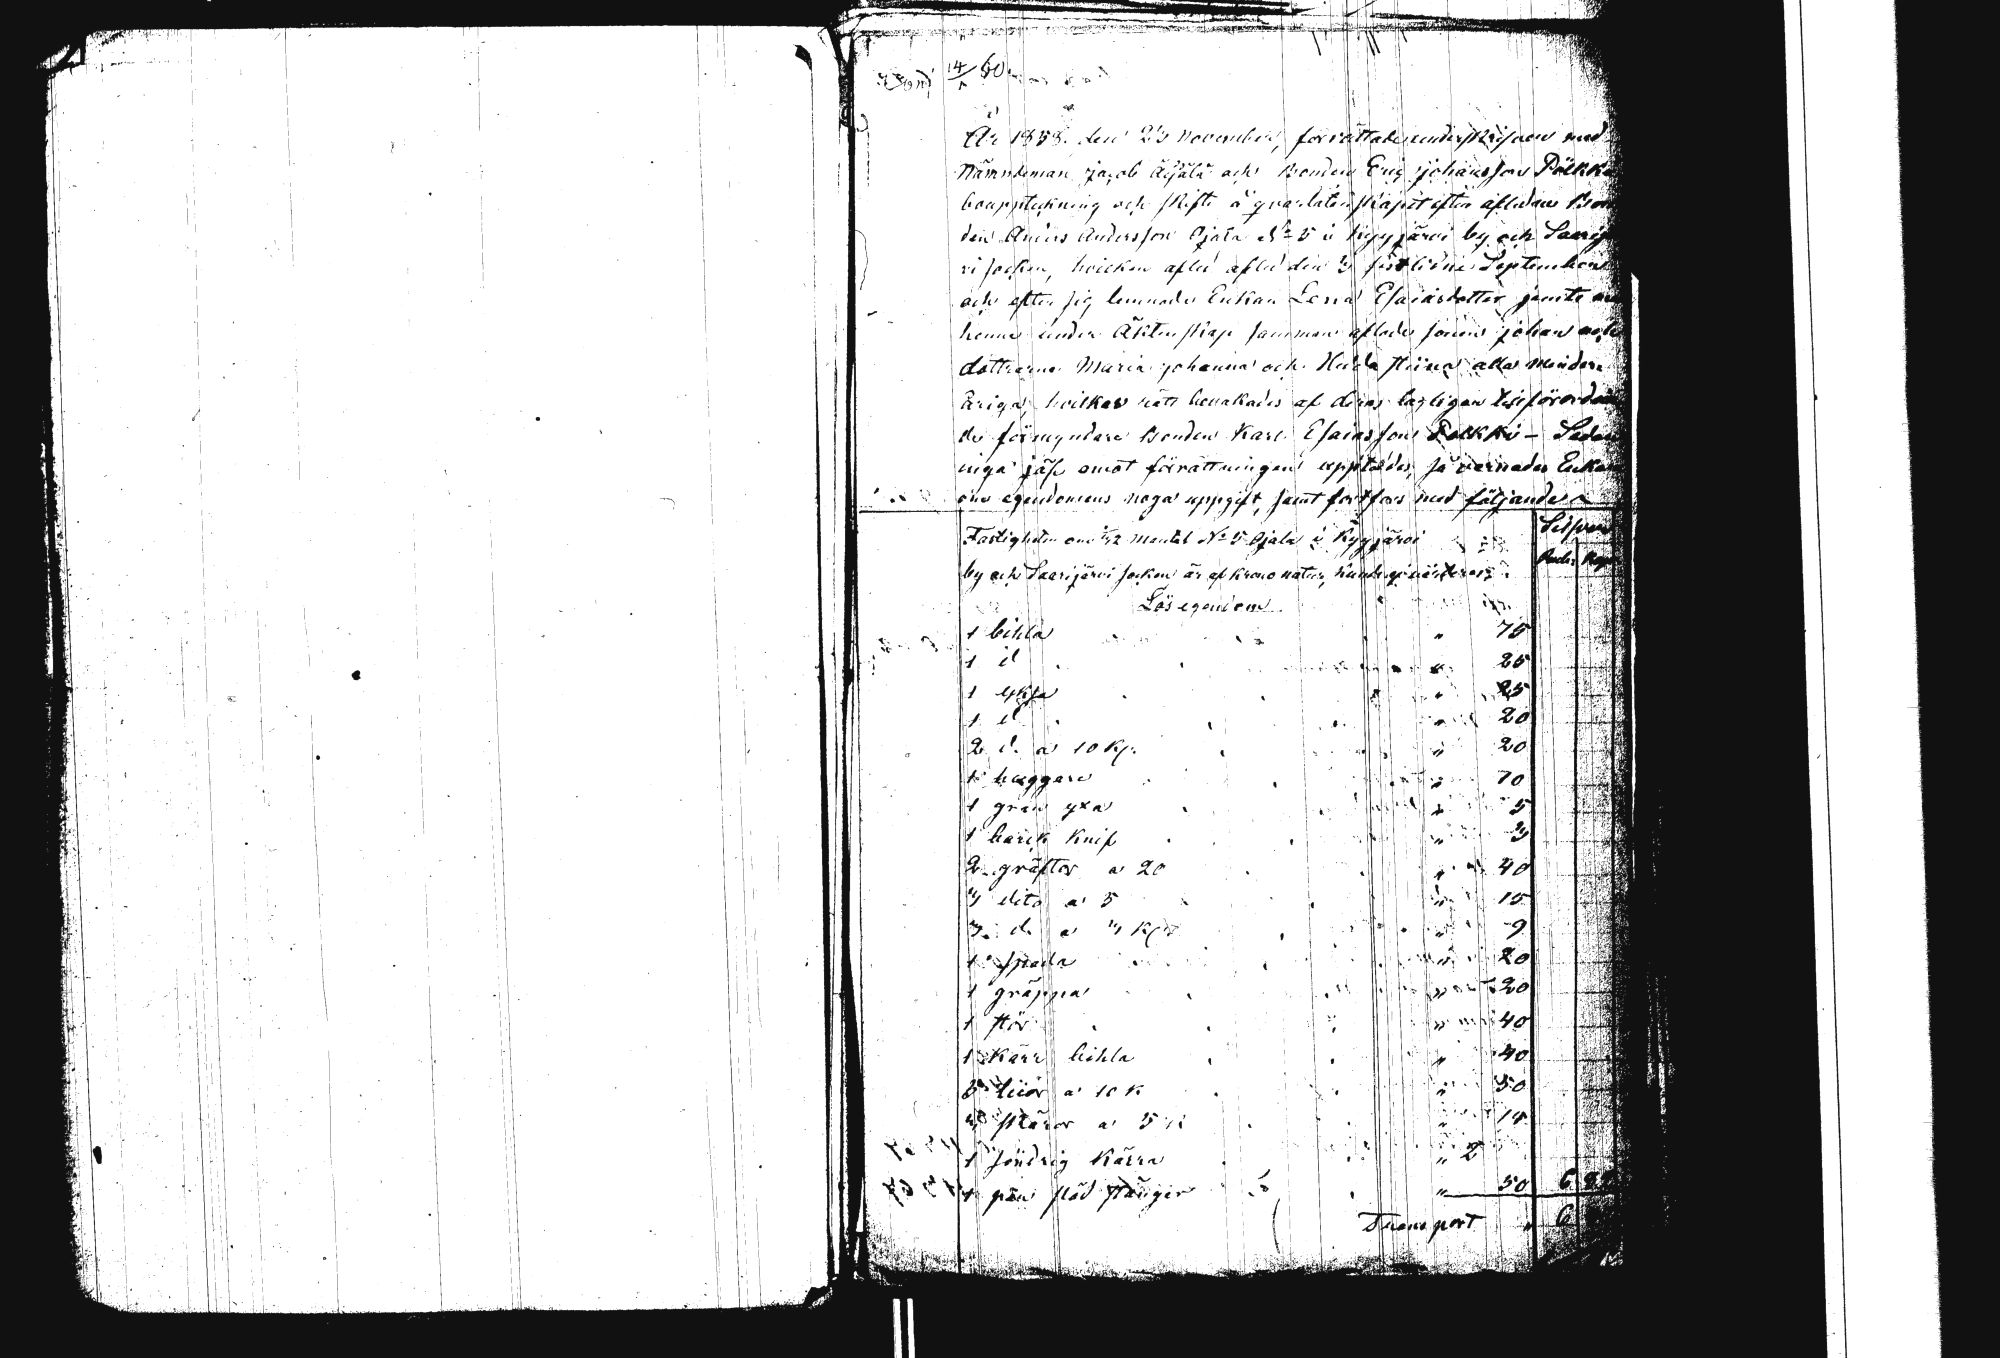 14/1 60.
År 1858. den 23 November, förrättade undertecknan med
Nämndeman Jacob Äijälä och Bonden Eric Johansson Pölkki
bouppteckning och skifte å qvarlåtenskapet efter aflidne Bon
den Anders Andersson Ojala No 5 i Kyyjärvi by och Saarijär
vi socken, hvilken afled afled den 3 sistlidne September
och efter sig lemnade Enkan Lena Esaiasdotter jemte med
henne under Äktenskap samman aflade sonen Johan och
döttrarne Maria Johanna och Hulda Stiina alla minder
åriga, hvilkas rätt bevakades af deras lagligen tillförordna
de förmyndare Bonden Karl Esaiasson Pölkki – Sedan
inga jäf emot förrättningen uppstodes, så varnades Enkan
om egendomens noga uppgift, samt fortfors med följande
Fastigheten om 1/12 mantal No 5 Ojala i Kyyjärvi
Silfver
by och Saarijärvi socken är af krono natur, kunde ej värderas
Rubl. Kop
Lös egendom
1 bihla " 75
1 d " 25
1 yksa " 25
1 d " 20
2 d. a 10 Kp. " 20
1 huggare " 10
1 gran yxa " 5
1 barck knif " 3
2 gräftor a 20 " 40
3 dito a 5 " 15
3 d. a 3 Kp " 9
1 spada " 20
1 gräppa " 20
1 stör " 40
1 Kärr bihla " 40
5 liior a 10 K " 50
3 skäror a 5 K " 15
1 söndrig Kärra " 2
1 par släd stänger " 50 6
Transport " 6